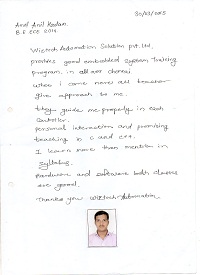 30/03/2015
Amol Anil Kadam.
B.E ECE 2014
Wiztech Automation Solution pvt.ltd,
provides good embedded system training
program in all over chennai
when i come here all teacher
give approach to me.
they guide me properly in each
controller.
personal interaction and promising
teaching in c and c++.
I learn more than mention in
syllabus.
Hardware and software both classes
are good.
Thank you Wiztech Automation